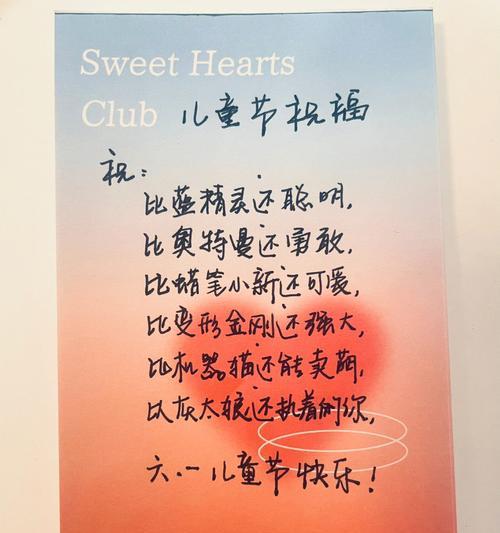 Sweet Hearts
Club 儿童节祝福
祝:
比蓝精灵还聪明,
比奥特曼还勇敢,
比蜡笔小新还可爱,
比变形金刚还强大,
比机器猫还能卖萌,
以灰太娘还执着的你,
六.一儿童节快乐!